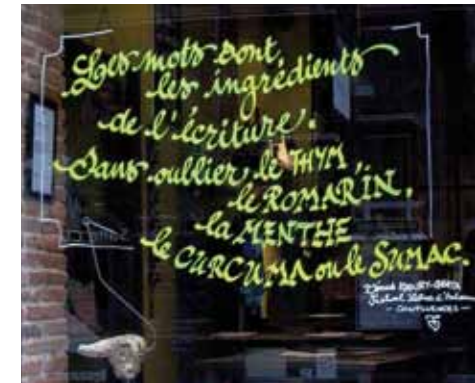 Les mots sont,
les ingrédients
de l'écriture.
Sans oublier, le THYM,
le ROMARIN,
la MENTHE
le CURCUMA ou le SUMAC.
- CONFLUENCES -